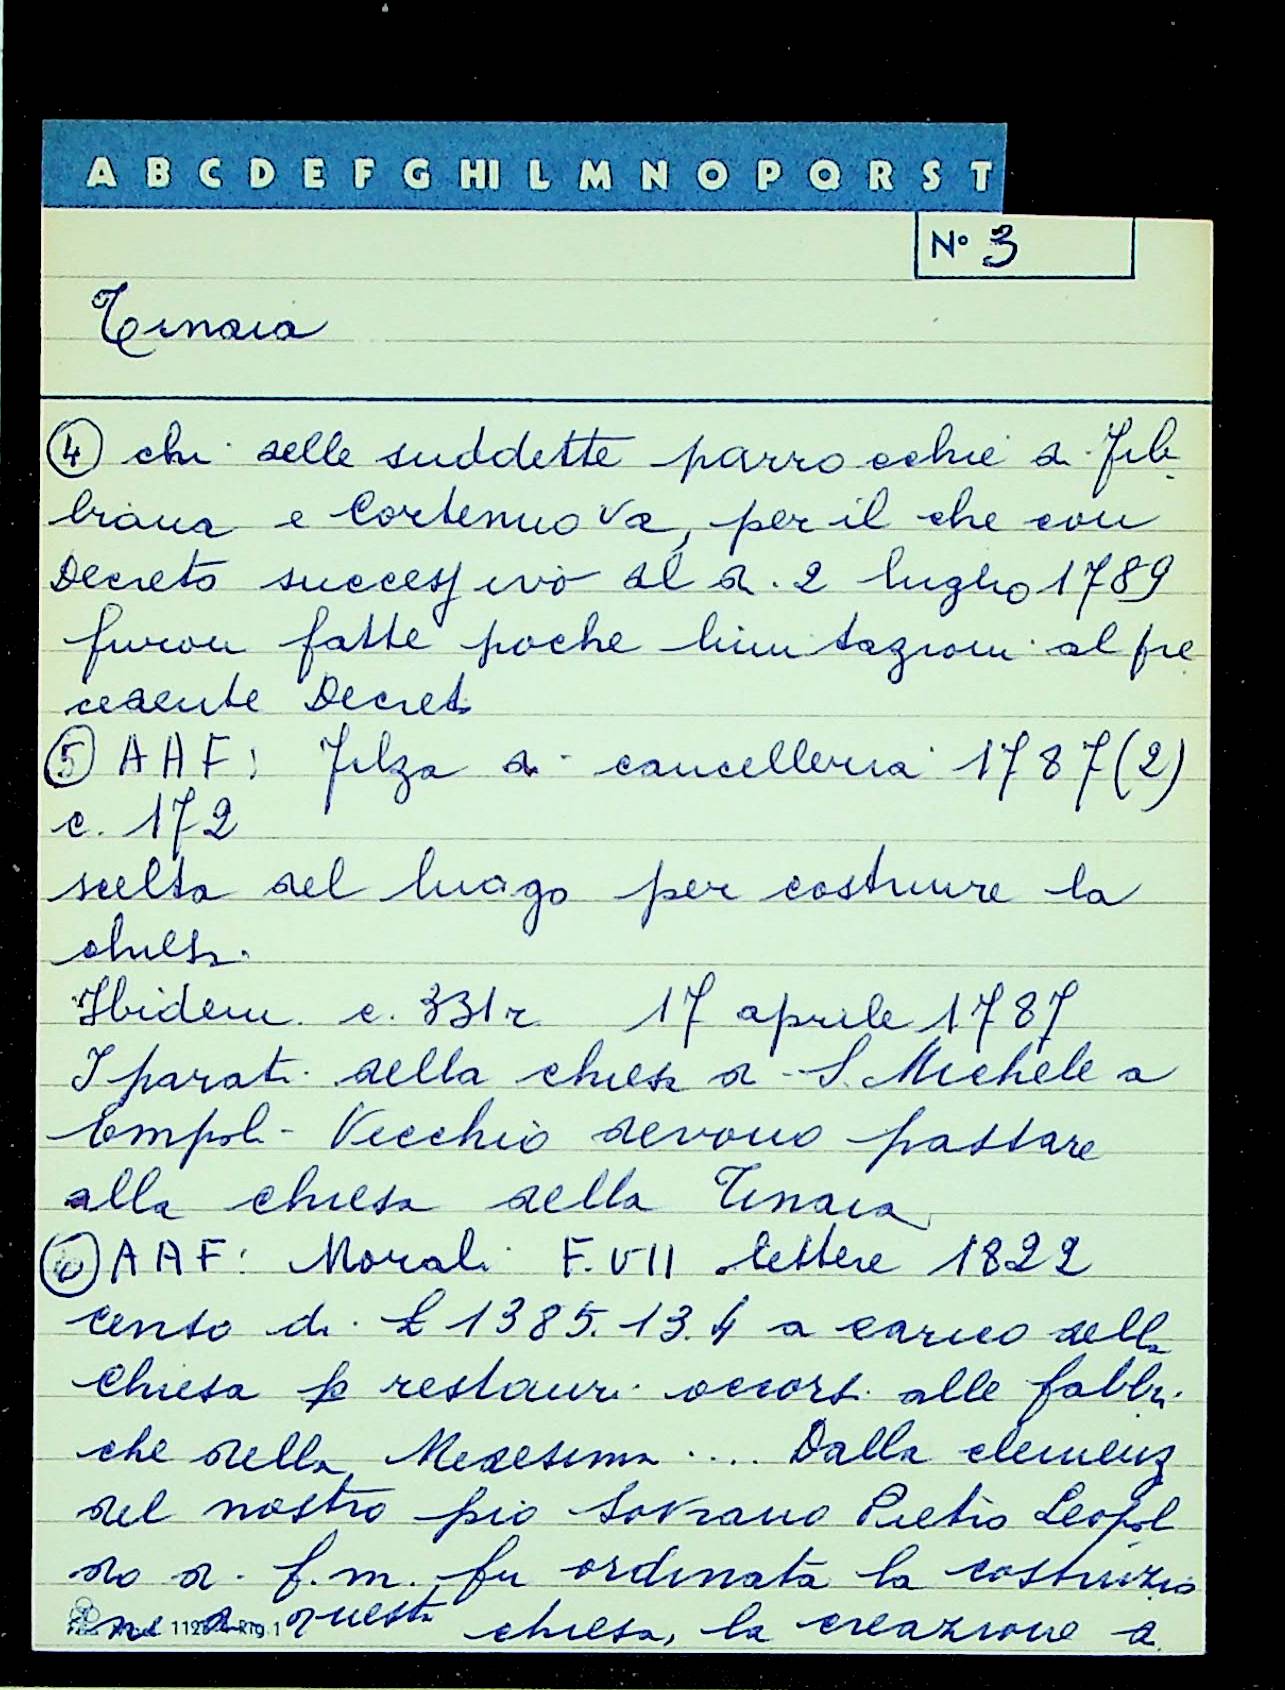 A B C D E F G HI L M N O P Q R S T
N° 3
Tinaia
④ chi delle suddette parrocchie di Fib
biana e Cortenuova, per il che con
Decreto successivo del dì 2 luglio 1789
furon fatte poche limitazioni al pre
cedente Decreto
⑤ AAF: Filza di cancelleria 1787 (2)
c. 172
scelta del luogo per costruire la
chiesa.
Ibidem c. 331r 17 aprile 1787
I parati della chiesa di S. Michele a
Empoli Vecchio devono passare
alla chiesa della Tinaia
⑥ AAF: Morali F. VII lettere 1822
censo di £ 1385.13.4 a carico della
chiesa p restauri occorsi alle fabbri
che della Medesima .... Dalla clemenza
del nostro pio Sovrano Pietro Leopol
do di f.m. fu ordinata la costruzio
ne di questa chiesa, la creazione di
112 Rig. 1